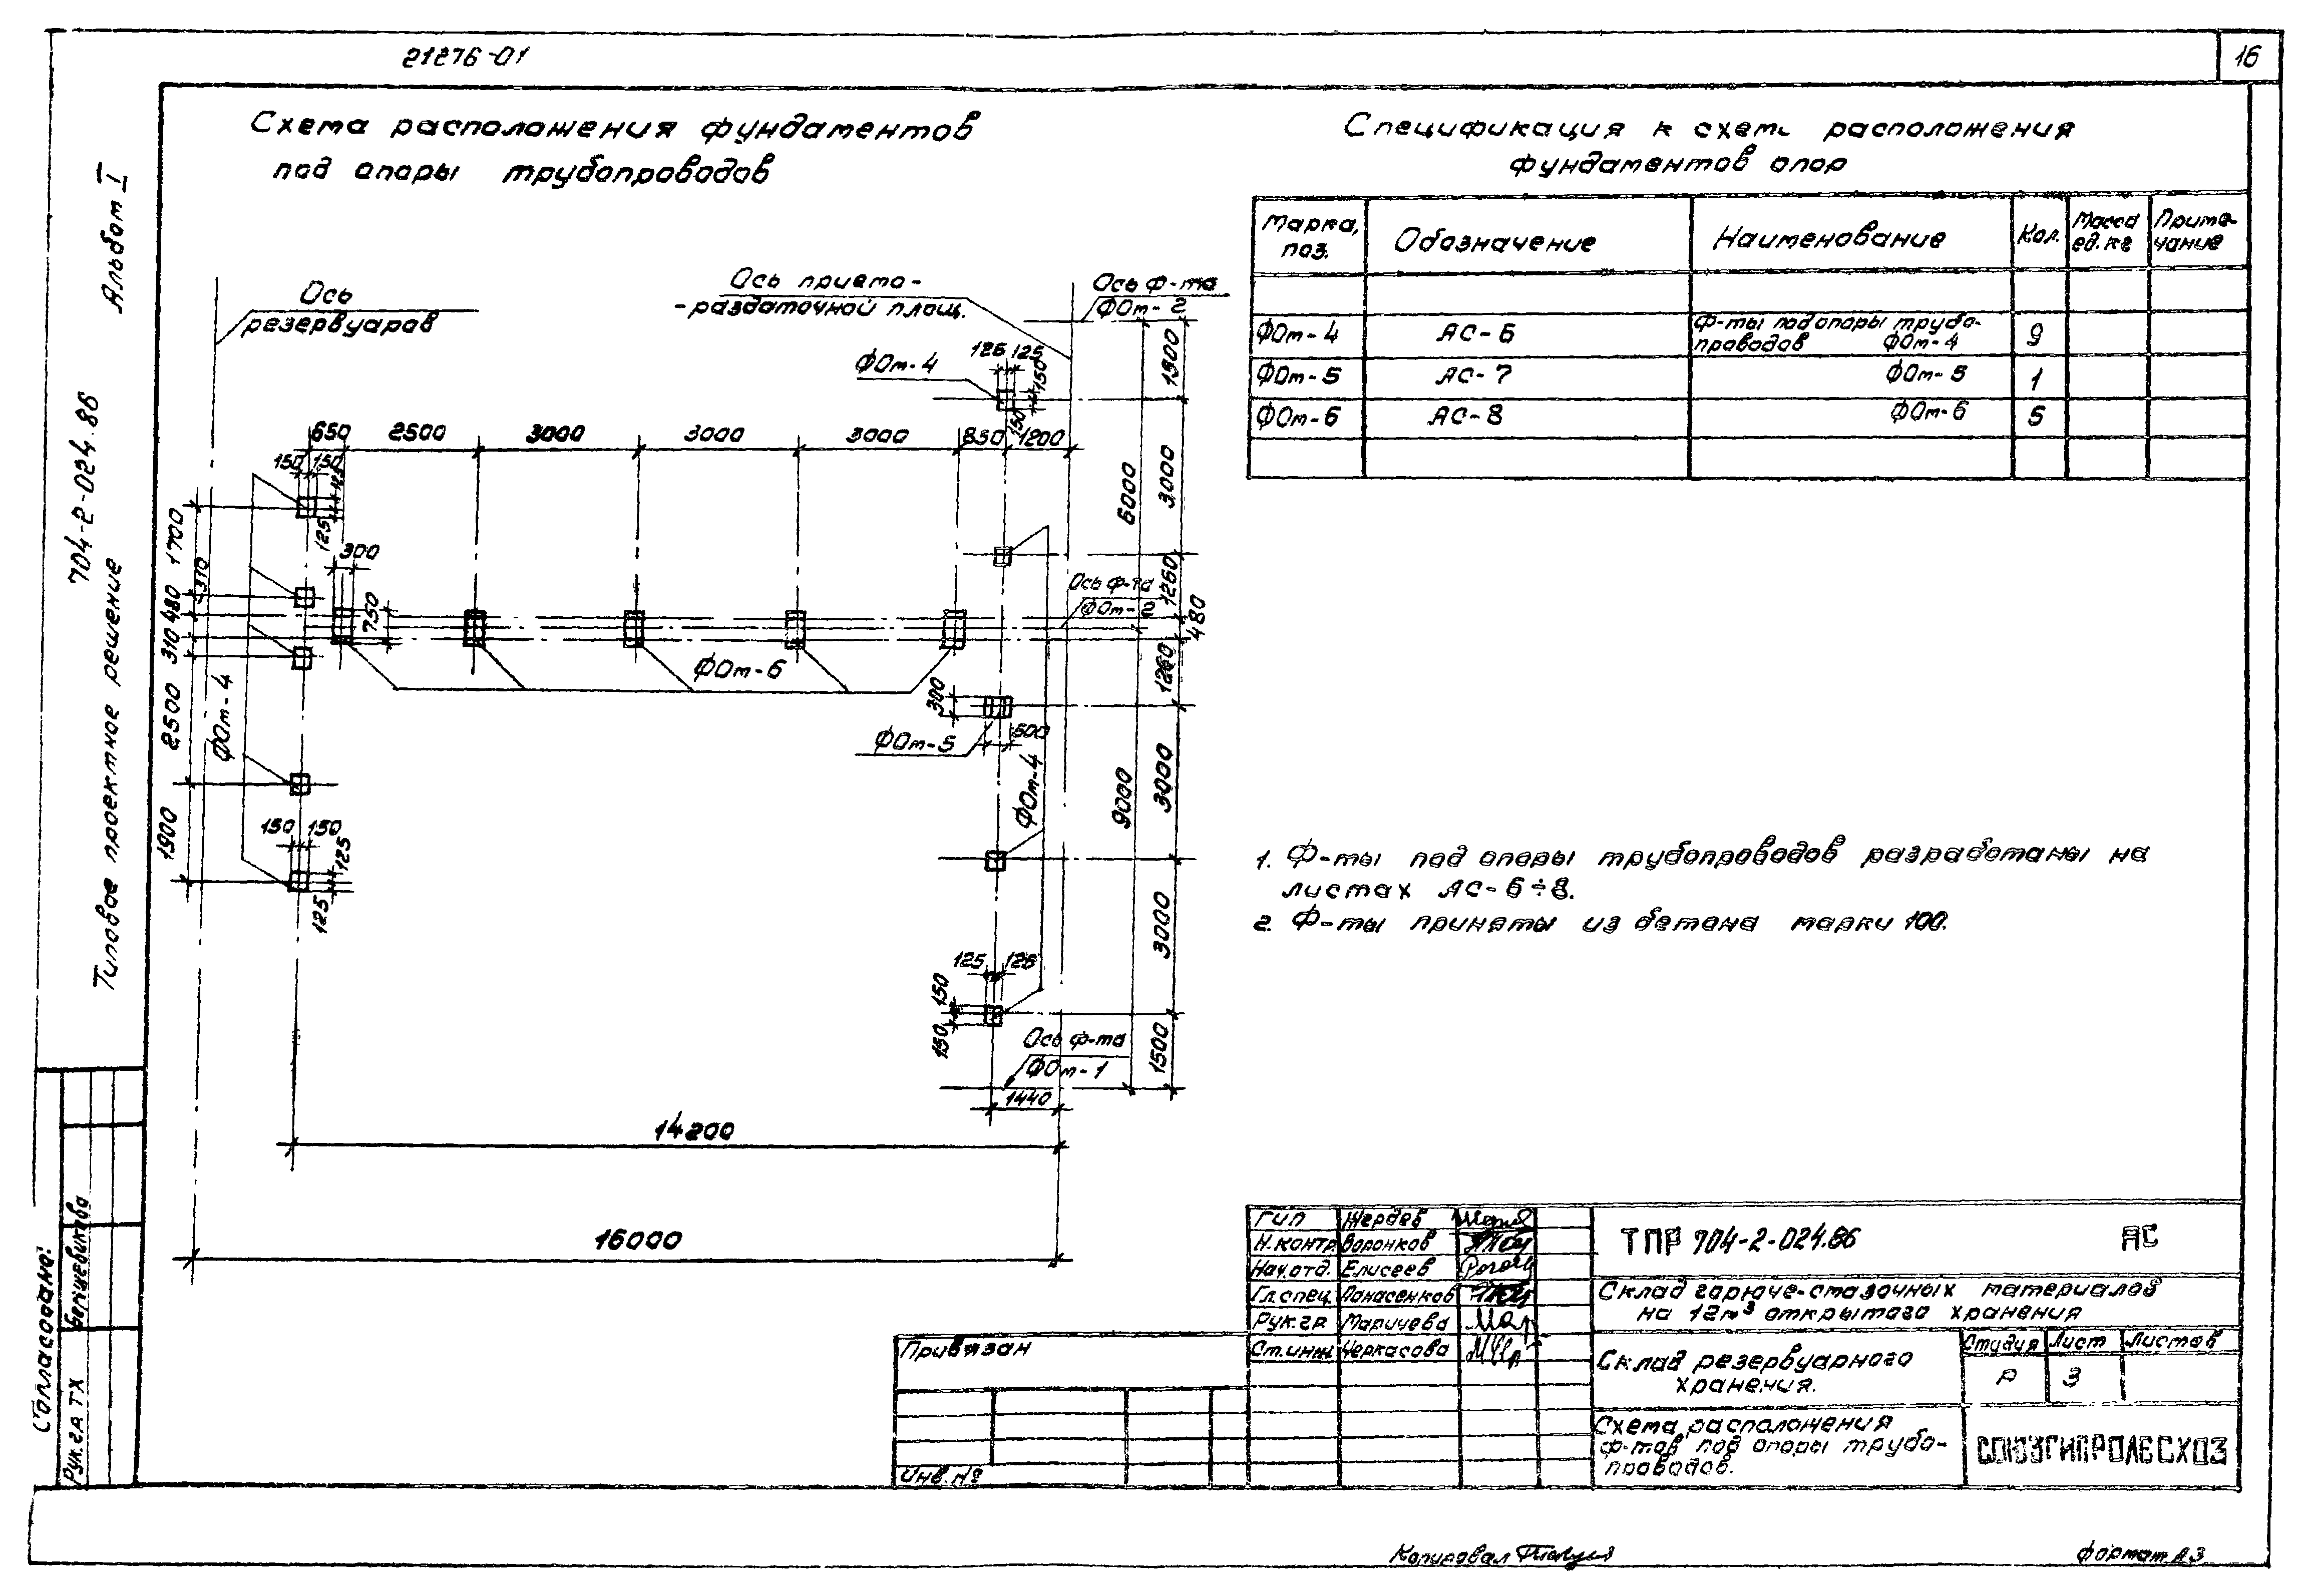 21276-01
16
Альбом I
704-2-024.86
Типовое проектное решение
Схема расположения фундаментов
под опары трубопроводов
Ось
резервуаров
Ось приемо-
-раздаточной площ.
Ось ф-та
ФОм-2
ФОм-4
125 125
150
150
1500
650 2500 3000 3000 3000 850 1200
150 150
125
125
300
750
6000
3000
1260
480
1260
3000
9000
3000
1500
1700
310
480
310
2500
1900
ФОм-4
Ось ф-та
ФОм-2
ФОм-6
300
ФОм-5
500
ФОм-4
150 150
125
125
125 125
150
150
Ось ф-та
ФОм-1
1440
14200
16000
Спецификация к схеме расположения
фундаментов опор
Марка, поз.
Обозначение
Наименование
Кол.
Масса ед. кг
Приме-чание
ФОм-4 АС-6 Ф-ты под опоры трубо-
проводов ФОм-4 9
ФОм-5 АС-7 ФОм-5 1
ФОм-6 АС-8 ФОм-6 5
1. Ф-ты под опоры трубопроводов разработаны на
листах АС-6÷8.
2. Ф-ты приняты из бетона марки 100.
Согласовано:
Рук. гр ТХ
ГИП Жердев
Н.контр. Воронков
Нач.отд. Елисеев
Гл.спец. Панасенков
Рук.гр Маричева
Ст.инж. Черкасова
ТПР 704-2-024.86 АС
Склад горюче-смазочных материалов
на 12м³ открытого хранения
Склад резервуарного
хранения.
Студия Лист Листов
Р 3
Схема расположения
ф-тов под опоры трубо-
проводов.
СОЮЗГИПРОЛЕСХОЗ
Привязан
Инв. №
Копировал
формат А3